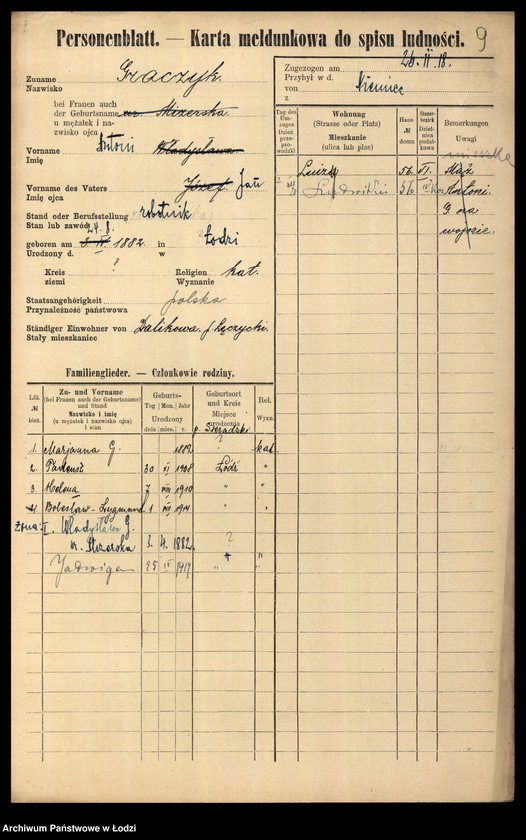 Personenblatt. — Karta meldunkowa do spisu ludności. 9
Zuname Graczyk.
Nazwisko
bei Frauen auch
der Geburtsname Mizerska
u mężatek i na-
zwisko ojca
Vorname Antoni Władysława
Imię
Vorname des Vaters Józef Jan
Imię ojca
Stand oder Berufsstellung robotnik
Stan lub zawód
geboren am 24.8. 1882 in Łodzi
Urodzony d. w
Kreis ? Religion kat.
ziemi Wyznanie
Staatsangehörigkeit polska
Przynależność państwowa
Ständiger Einwohner von Dalikowa. p Łęczycki.
Stały mieszkaniec
Zugezogen am 26. II. 18.
Przybył w d.
von Niemiec
z
Tag des Um-
zuges
Dzień
prze-
prowadzki
Wohnung
(Strasse oder Platz)
Mieszkanie
(ulica lub plac)
Haus-
№
domu
Steuer-
bezirk
Dziel-
nica
podat-
kowa
Bemerkungen
Uwagi
Luizy 56. VI. Mąż
56 Antoni
G. na
wojnie.
Familienglieder. — Członkowie rodziny.
Lfd.
№
bież.
Zu- und Vorname
(bei Frauen auch der Geburtsname)
und Stand
Nazwisko i imię
(u mężatek i nazwisko ojca)
i stan
Geburts-
Tag Mon. Jahr
Urodzony
dnia mies. r.
Geburtsort
und Kreis
Miejsce
urodzenia
p. Sieradzki
Rel.
Wyzn.
1. Marjanna G. 1882. ? kat.
2. Tadeusz 30 VI 1908 Łódź "
3. Helena 7 VIII 1910 " "
4. Bolesław-Zygmunt 1 VIII 1914 " "
żona II. Władysława G.
Mizerska 3. 4. 1882. ?
Jadwiga 25 IV 1919 " "
Archiwum Państwowe w Łodzi